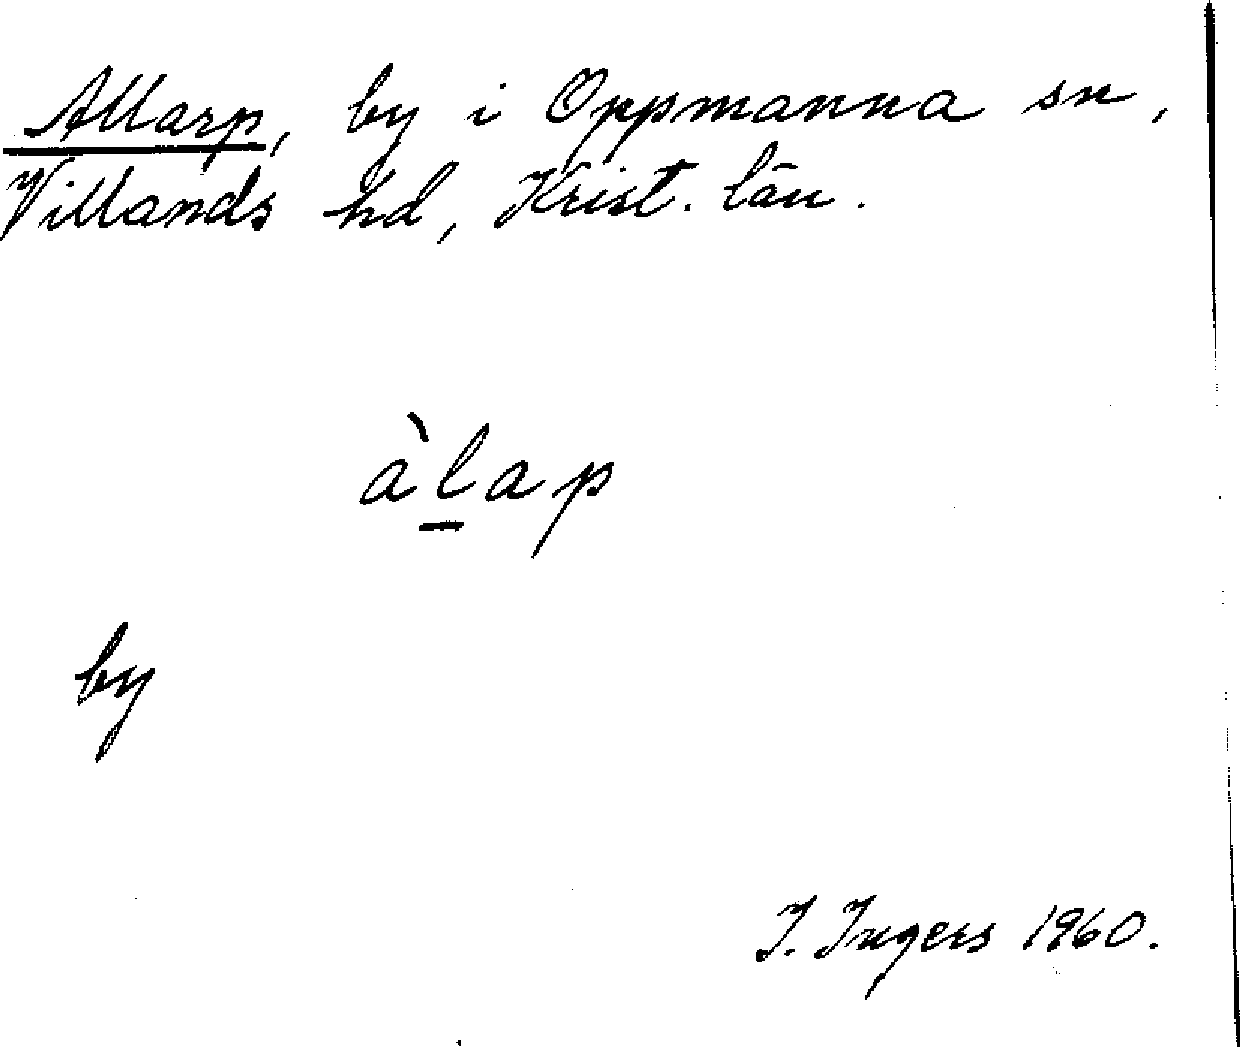 Allarp, by i Oppmanna sn,
Villands hd, Krist. län.
àl̲ap
by
I. Ingers 1960.